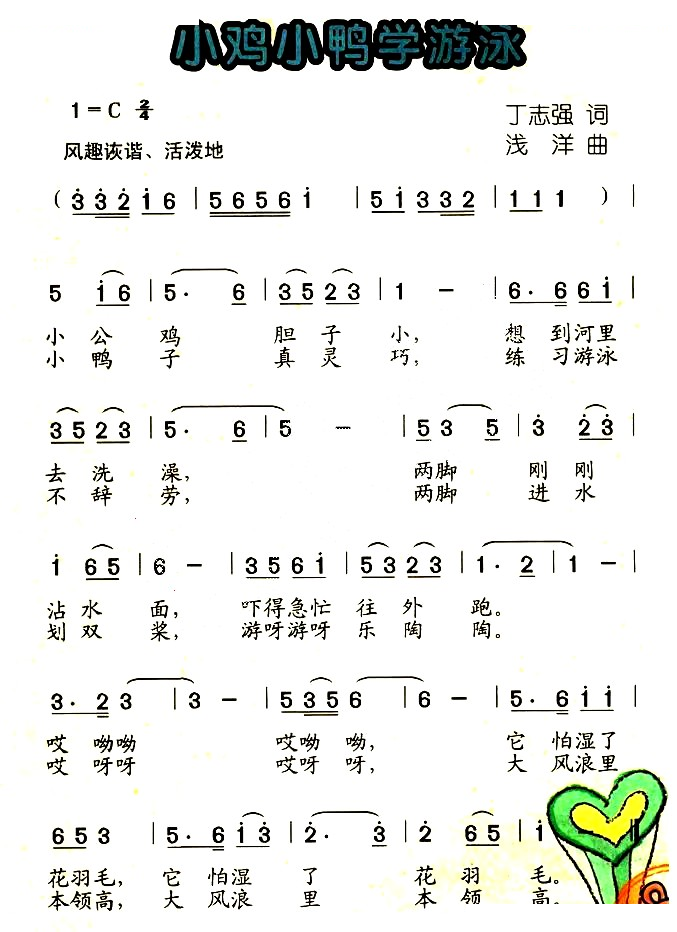 小鸡小鸭学游泳
1=C 2/4
丁志强 词
风趣诙谐、活泼地
浅 洋 曲
( 3 3 2 1 6 | 5 6 5 6 1 | 5 1 3 3 2 | 1 1 1 ) |
5 1 6 | 5· 6 | 3 5 2 3 | 1 – | 6· 6 6 1 |
小 公 鸡 胆 子 小, 想 到河里
小 鸭 子 真 灵 巧, 练 习游泳
3 5 2 3 | 5· 6 | 5 – | 5 3 5 | 3 2 3 |
去 洗 澡, 两脚 刚 刚
不 辞 劳, 两脚 进 水
1 6 5 | 6 – | 3 5 6 1 | 5 3 2 3 | 1· 2 | 1 – |
沾 水 面, 吓得急忙 往 外 跑。
划 双 桨, 游呀游呀 乐 陶 陶。
3· 2 3 | 3 – | 5 3 5 6 | 6 – | 5· 6 1 1 |
哎 呦呦 哎呦 呦, 它 怕湿了
哎 呀呀 哎呀 呀, 大 风浪里
6 5 3 | 5· 6 1 3 | 2· 3 | 2 6 5 | 1
花羽毛, 它 怕湿 了 花 羽 毛。
本领高, 大 风浪 里 本 领 高。